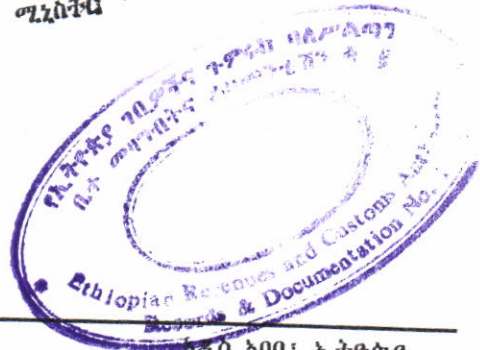 ሚኒስትር
የኢትዮጵያ ገቢዎችና ጉምሩክ ባለሥልጣን
ቤተ መዛግብትና
Ethiopian Revenues and Customs
Records & Documentation No.
አዲስ አበባ፣ ኢትዮጵያ